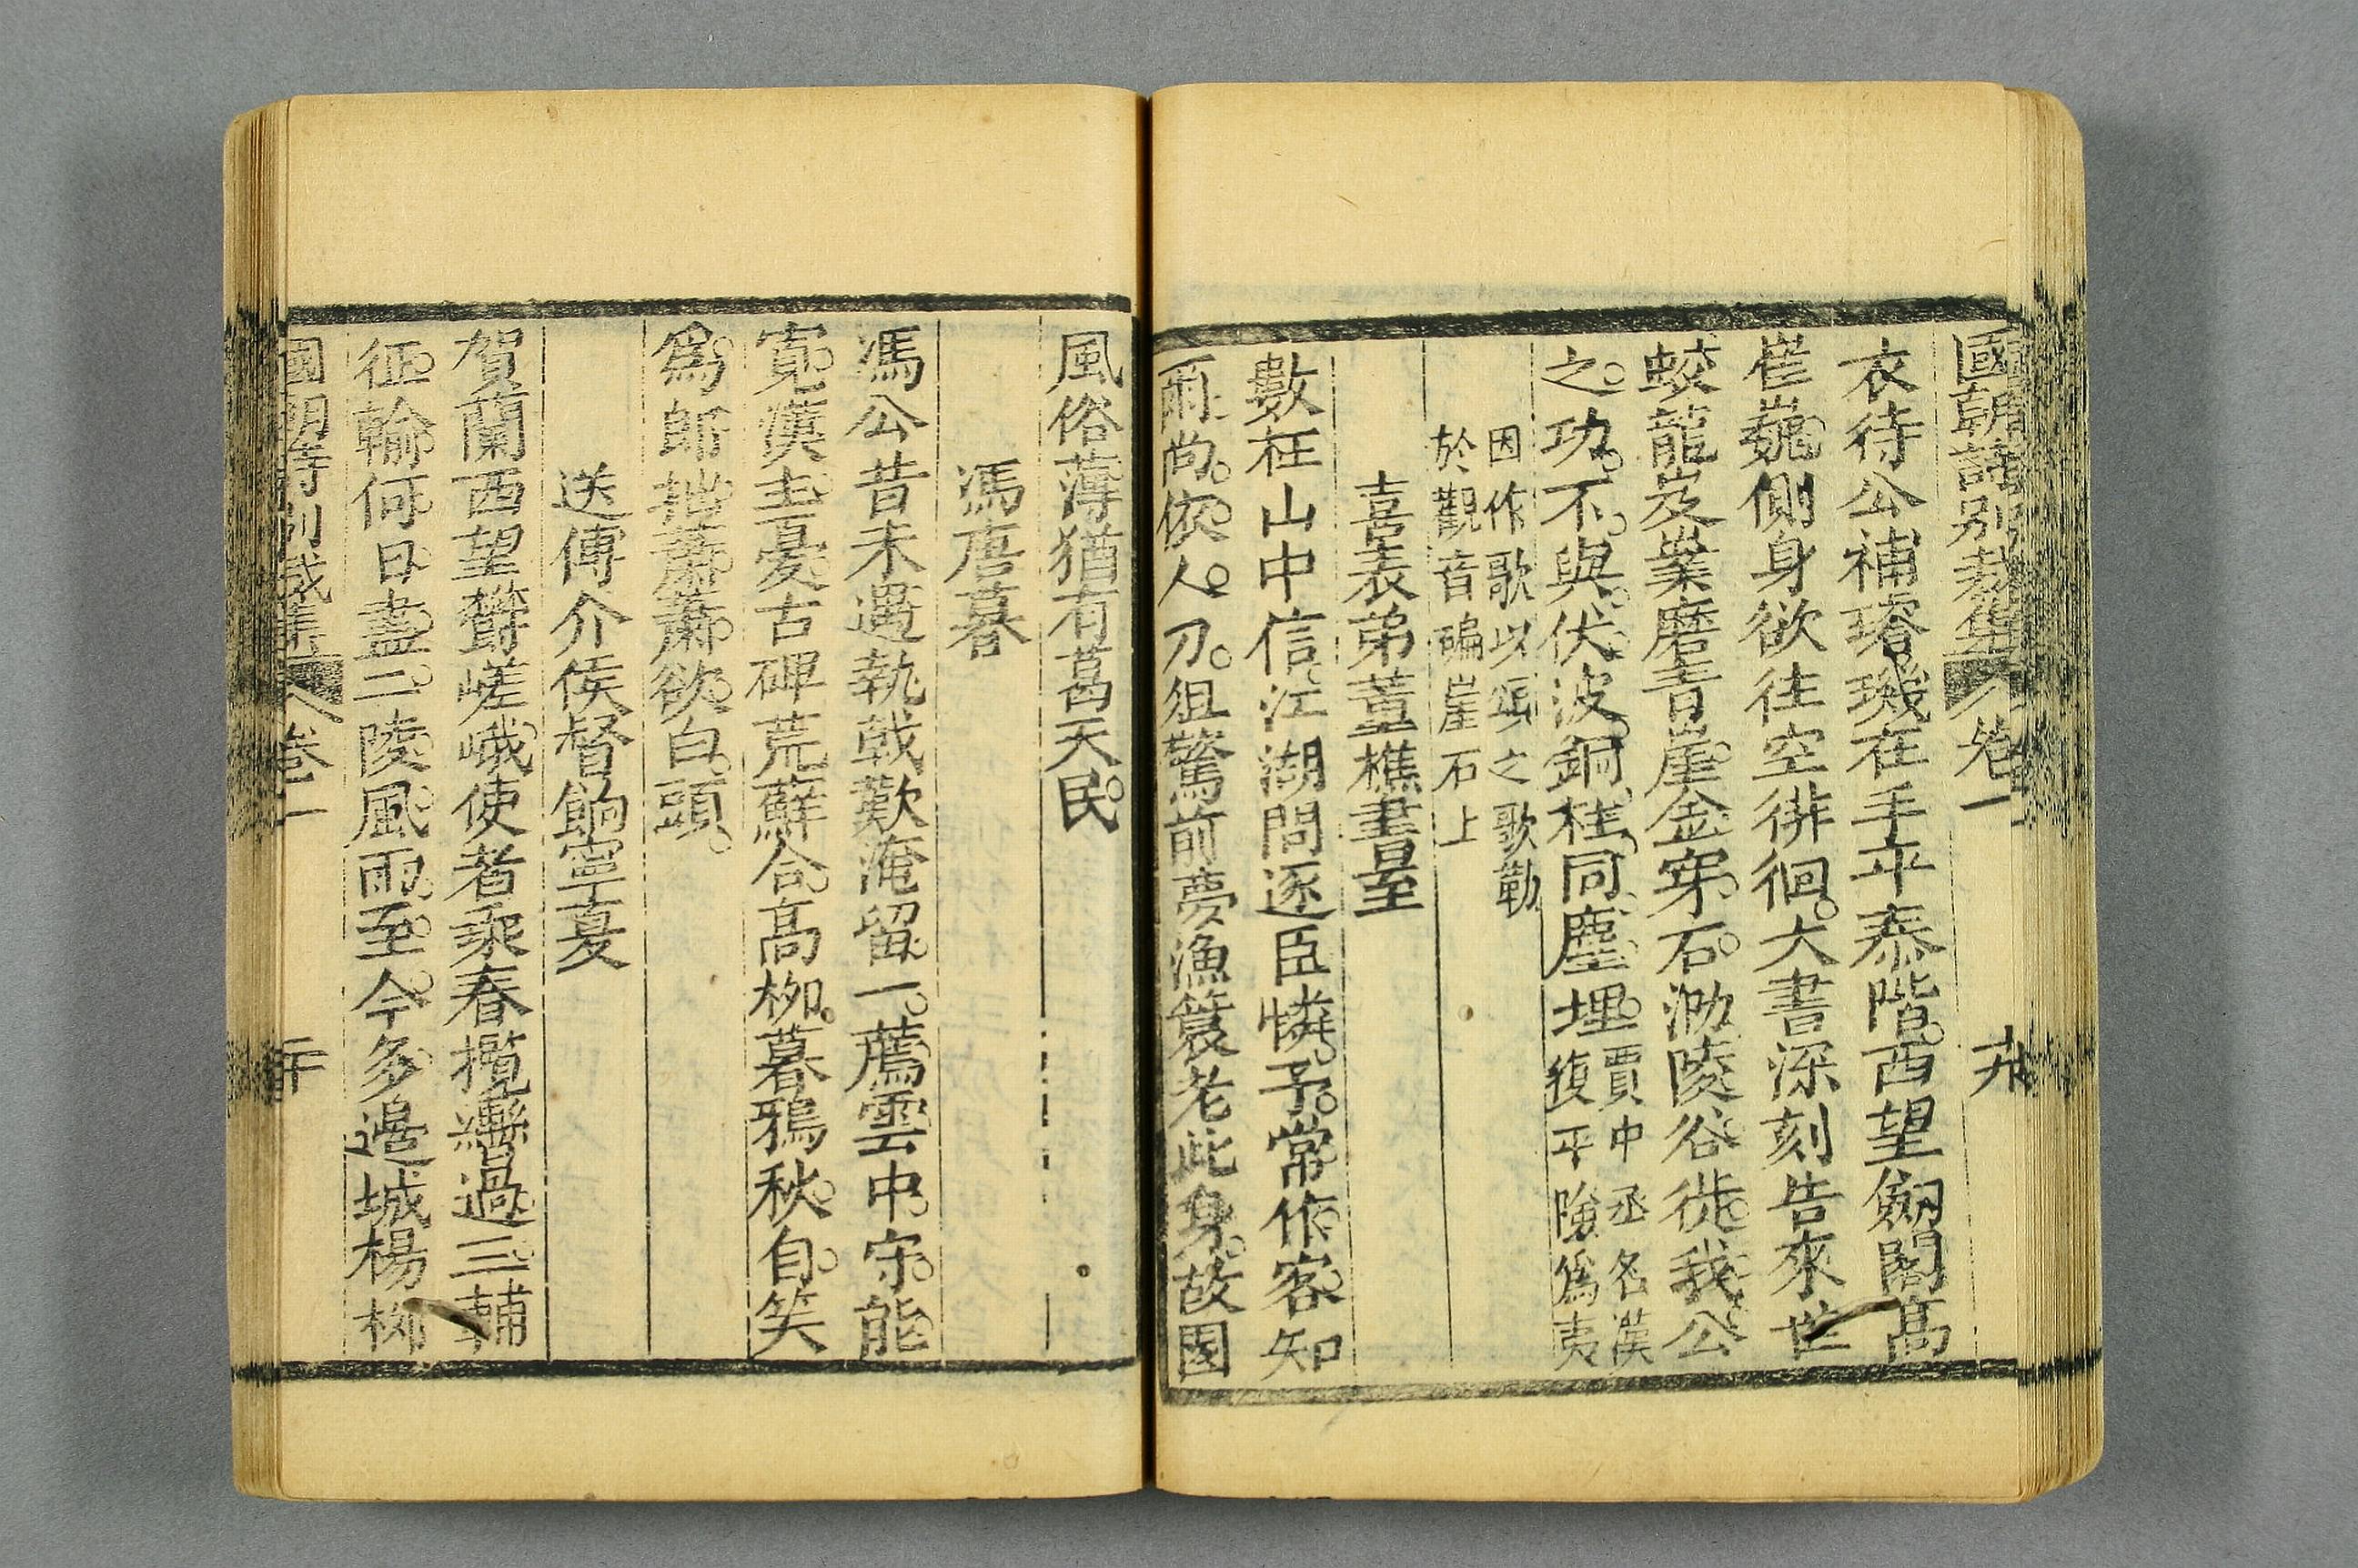 國朝詩別裁集 卷一 十九
衣待公補璿璣在手平泰階。西望劒閣高
崔巍側身欲往空徘徊。大書深刻告來世
蛟龍岌嶪磨青崖金穿石泐陵谷徙我公
之功不與伏波銅柱同塵埋 賈中丞名漢
復平險爲夷
因作歌以頌之歌勒
於觀音碥崖石上
喜表弟董樵書至
數在山中信江湖問逐臣憐予常作客知
爾尚依人刀俎驚前夢漁簑老此身故園
風俗薄猶有葛天民
馮唐墓
馮公昔未遇執戟歎淹留一薦雲中守能
寬漢主憂古碑荒蘚合高栁暮鴉秋自笑
爲郎拙蕭蕭欲白頭
送傅介侯督餉寧夏
賀蘭西望欝嵯峨使者乘春攬轡過三輔
征輪何日盡二陵風雨至今多邊城楊栁
國朝詩別裁集 卷一 二十